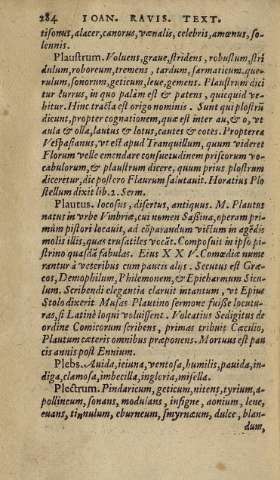 284 IOAN. RAVIS. TEXT.
tisonus, alacer, canorus, vænalis, celebris, amœnus, so-
lennis.
Plaustrum. Voluens, graue, stridens, robustum, stri
dulum, roboreum, tremens, tardum, sarmaticum, que-
rulum, sonorum, geticum, leue, gemens. Plaustrum dici
tur currus, in quo palàm est & patens, quicquid ve-
hitur. Hinc tracta est origo nominis. Sunt qui plostrū
dicunt, propter cognationem, quæ est inter au, & o, vt
aula & olla, lautus & lotus, cautes & cotes. Propterea
Vespasianus, vt est apud Tranquillum, quum videret
Florum velle emendare consuetudinem priscorum vo-
cabulorum, & plaustrum dicere, quum prius plostrum
diceretur, die postero Flaurum salutauit. Horatius Plo
stellum dixit lib. 2. Serm.
Plautus. Iocosus, disertus, antiquus. M. Plautus
natus in vrbe Vmbriæ, cui nomen Sassina, operam pri-
mùm pistori locauit, ad cōparandum victum in agēdis
molis illis, quas trusatiles vocāt. Composuit in ipso pi-
strino quasdā fabulas. Eius XXV. Comœdiæ nume
rantur à veteribus cum paucis alijs. Secutus est Græ-
cos, Demophilum, Philemonem, & Epicharmum Sicu-
lum. Scribendi elegantia claruit intantum, vt Epius
Stolo dixerit Musas Plautino sermone fuisse locutu-
ras, si Latinè loqui voluissent. Volcatius Sedigitus de
ordine Comicorum scribens, primas tribuit Cæcilio,
Plautum cæteris omnibus præponens. Mortuus est pau
cis annis post Ennium.
Plebs. Auida, ieiuna, ventosa, humilis, pauida, in-
diga, clamosa, imbecilla, ingloria, misella.
Plectrum. Pindaricum, geticum, nitens, tyrium, a-
pollineum, sonans, modulans, insigne, aonium, leue,
euans, tinnulum, eburneum, smyrnæum, dulce, blan-
dum,